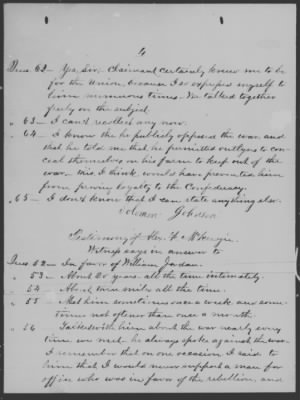 4
Ques 62 — Yes, Sir; Claimant certainly knew me to be
for the Union, because I so expressed myself to
him numerous times. We talked together
freely on the subject.
" 63 — I can't recollect any now.
" 64 — I know that he publicly opposed the war, and
that he told me that he permitted outlyers to con-
ceal themselves on his farm to keep out of the
war — this I think would have prevented him
from proving loyalty to the Confederacy.
" 65 — I don't know that I can state anything else.
Solomon Johnson
Testimony of Alex. F. McKenzie
Witness says in answer to
Ques 52 — In favor of William Jordan.
" 53 — About 20 years. all the time intimately.
" 54 About two miles all the time.
" 55 Met him sometimes once a week, and some-
times not oftener than once a month.
" 56 Talked with him about the war nearly every
time we met. he always spoke against the war.
I remember that on one occasion, I said to
him that I would never support a man for
office who was in favor of the rebellion, and